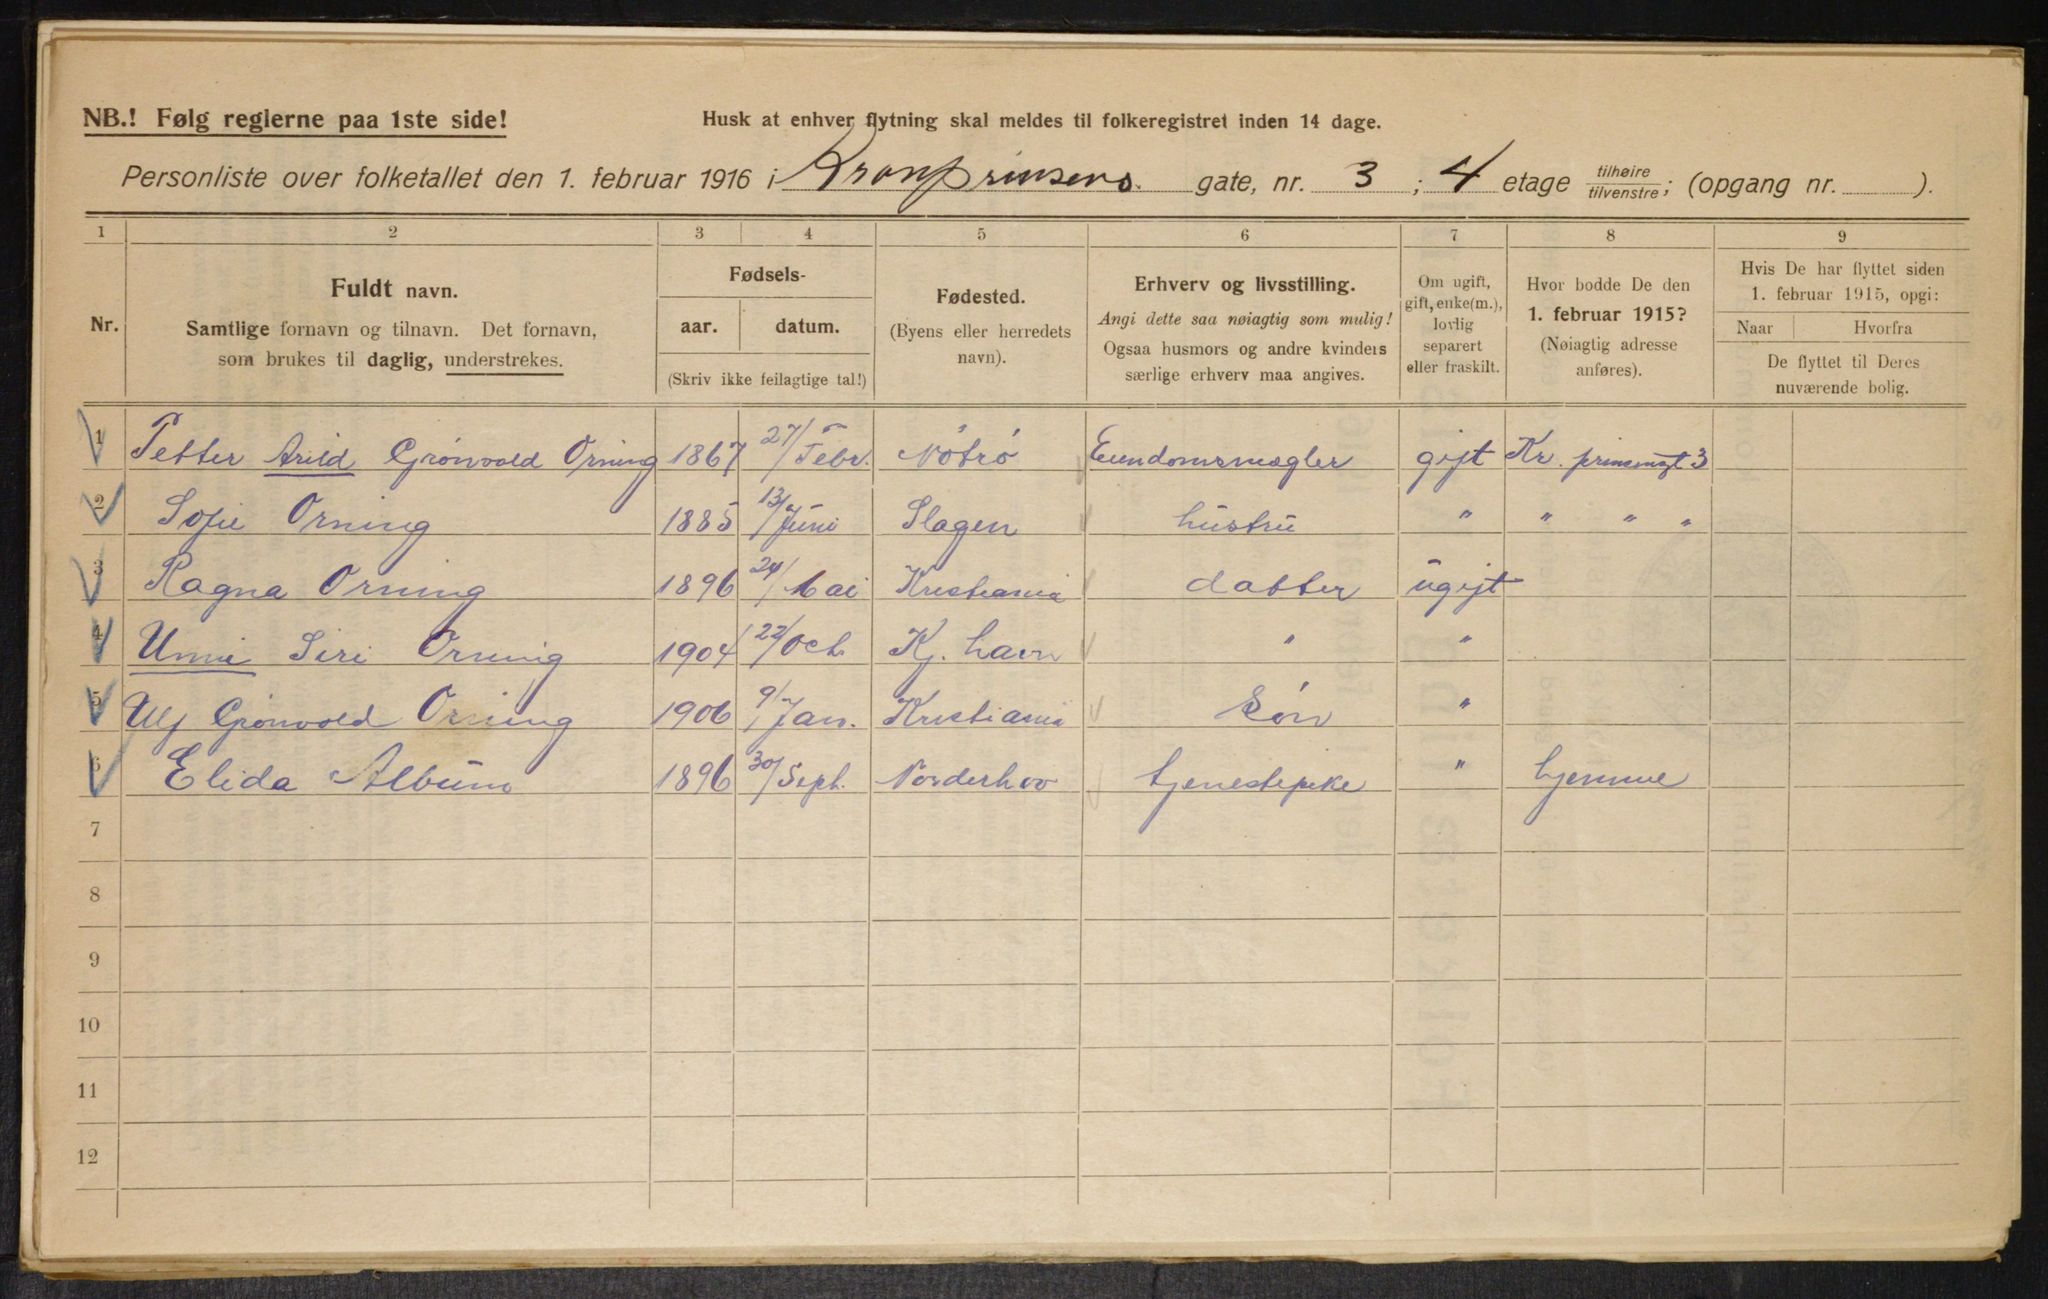 NB.! Følg reglerne paa 1ste side!
Husk at enhver flytning skal meldes til folkeregistret inden 14 dage.
Personliste over folketallet den 1. februar 1916 i Kronprinsens gate, nr. 3 ; 4 etage tilhøire tilvenstre ; (opgang nr. ).
1 2 3 4 5 6 7 8 9
Nr.
Fuldt navn.
Samtlige fornavn og tilnavn. Det fornavn,
som brukes til daglig, understrekes.
Fødsels-
aar. datum.
(Skriv ikke feilagtige tal!)
Fødested.
(Byens eller herredets
navn).
Erhverv og livsstilling.
Angi dette saa nøiagtig som mulig!
Ogsaa husmors og andre kvinders
særlige erhverv maa angives.
Om ugift,
gift, enke(m.),
lovlig
separert
eller fraskilt.
Hvor bodde De den
1. februar 1915?
(Nøiagtig adresse
anføres).
Hvis De har flyttet siden
1. februar 1915, opgi:
Naar Hvorfra
De flyttet til Deres
nuværende bolig.
1 Petter Arild Grönvold Orning 1867 27/Febr. Nötrö Eiendomsmægler gift Kr. prinsensgt 3
2 Sofie Orning 1885 13/Juni Slagen hustru " " " "
3 Ragna Orning 1896 24/Mai Kristiania datter ugift
4 Unni Siri Orning 1904 22/Oct. Kj. havn " "
5 Ulf Grönvold Orning 1906 9/Jan. Kristiania Sön "
6 Elida Album 1896 30/Sept. Norderhov tjenestepike " hjemme
7
8
9
10
11
12